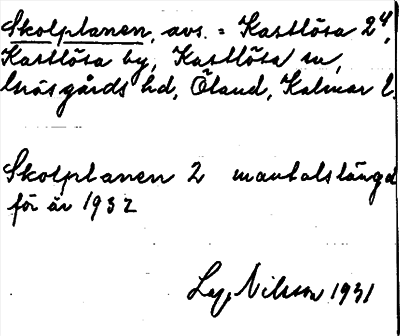 Skolplanen, avs. = Kastlösa 2⁴,
Kastlösa by, Kastlösa sn,
Gräsgårds hd, Öland, Kalmar l.
Skolplanen 2 mantalslängd
för år 1932
Nilsson 1931